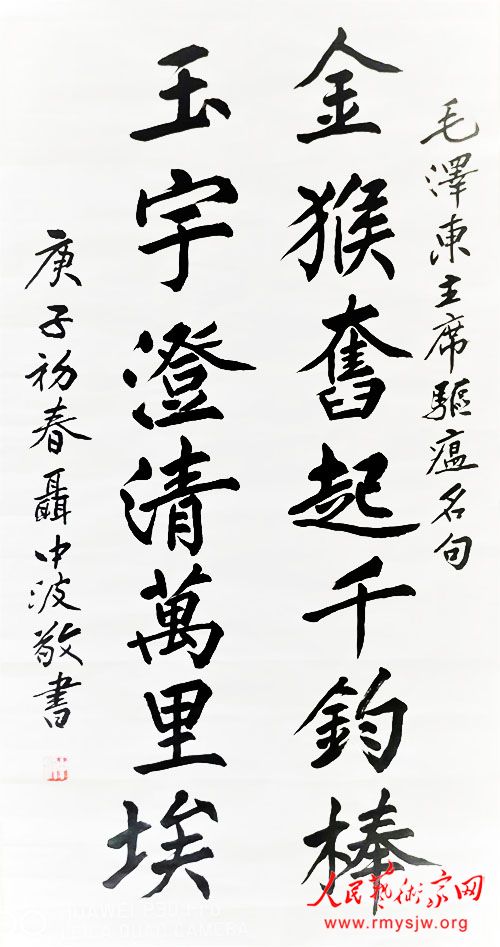 毛澤東主席驅瘟名句
金猴奮起千鈞棒
玉宇澄清萬里埃
庚子初春聶中波敬書
人民藝術家网
www.rmysjw.org
HUAWEI P30 PRO
LEICA QUAD CAMERA